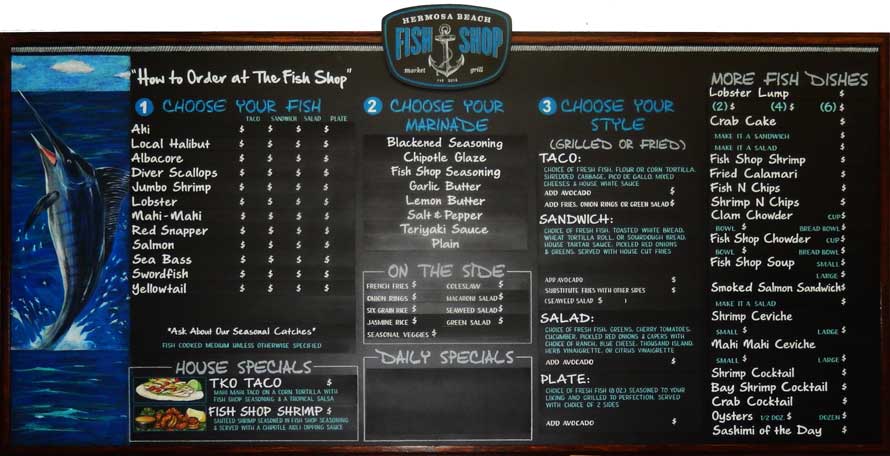 HERMOSA BEACH
FISH SHOP
market grill
"How to Order at The Fish Shop"
1 CHOOSE YOUR FISH
TACO SANDWICH SALAD PLATE
Ahi $ $ $ $
Local Halibut $ $ $ $
Albacore $ $ $ $
Diver Scallops $ $ $ $
Jumbo Shrimp $ $ $ $
Lobster $ $ $ $
Mahi-Mahi $ $ $ $
Red Snapper $ $ $ $
Salmon $ $ $ $
Sea Bass $ $ $ $
Swordfish $ $ $ $
Yellowtail $ $ $ $
*Ask About Our Seasonal Catches*
FISH COOKED MEDIUM UNLESS OTHERWISE SPECIFIED
HOUSE SPECIALS
TKO TACO $
MAHI MAHI TACO ON A CORN TORTILLA WITH
FISH SHOP SEASONING & A TROPICAL SALSA
FISH SHOP SHRIMP $
SAUTEED SHRIMP SEASONED IN FISH SHOP SEASONING
& SERVED WITH A CHIPOTLE AIOLI DIPPING SAUCE
2 CHOOSE YOUR
MARINADE
Blackened Seasoning
Chipotle Glaze
Fish Shop Seasoning
Garlic Butter
Lemon Butter
Salt & Pepper
Teriyaki Sauce
Plain
ON THE SIDE
FRENCH FRIES $ COLESLAW $
ONION RINGS $ MACARONI SALAD $
SIX GRAIN RICE $ SEAWEED SALAD $
JASMINE RICE $ GREEN SALAD $
SEASONAL VEGGIES $
DAILY SPECIALS
3 CHOOSE YOUR
STYLE
(GRILLED OR FRIED)
TACO:
CHOICE OF FRESH FISH, FLOUR OR CORN TORTILLA,
SHREDDED CABBAGE, PICO DE GALLO, MIXED
CHEESES & HOUSE WHITE SAUCE
ADD AVOCADO $
ADD FRIES, ONION RINGS OR GREEN SALAD $
SANDWICH:
CHOICE OF FRESH FISH, TOASTED WHITE BREAD,
WHEAT TORTILLA ROLL, OR SOURDOUGH BREAD,
HOUSE TARTAR SAUCE, PICKLED RED ONIONS
& GREENS. SERVED WITH HOUSE CUT FRIES
ADD AVOCADO $
SUBSTITUTE FRIES WITH OTHER SIDES $
(SEAWEED SALAD $ )
SALAD:
CHOICE OF FRESH FISH, GREENS, CHERRY TOMATOES,
CUCUMBER, PICKLED RED ONIONS & CAPERS WITH
CHOICE OF RANCH, BLUE CHEESE, THOUSAND ISLAND,
HERB VINAIGRETTE, OR CITRUS VINAIGRETTE
ADD AVOCADO $
PLATE:
CHOICE OF FRESH FISH (8 OZ.) SEASONED TO YOUR
LIKING AND GRILLED TO PERFECTION. SERVED
WITH CHOICE OF 2 SIDES
ADD AVOCADO $
MORE FISH DISHES
Lobster Lump $
(2) $ (4) $ (6) $
Crab Cake $
MAKE IT A SANDWICH $
MAKE IT A SALAD $
Fish Shop Shrimp $
Fried Calamari $
Fish N Chips $
Shrimp N Chips $
Clam Chowder CUP $
BOWL $ BREAD BOWL $
Fish Shop Chowder CUP $
BOWL $ BREAD BOWL $
Fish Shop Soup SMALL $
LARGE $
Smoked Salmon Sandwich $
MAKE IT A SALAD $
Shrimp Ceviche
SMALL $ LARGE $
Mahi Mahi Ceviche
SMALL $ LARGE $
Shrimp Cocktail $
Bay Shrimp Cocktail $
Crab Cocktail $
Oysters 1/2 DOZ. $ DOZEN $
Sashimi of the Day $